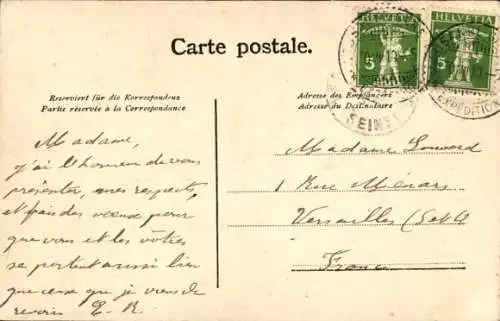 HELVETIA
5
HELVETIA
5
Carte postale.
Reserviert für die Korrespondenz
Partie réservée à la Correspondance
Adresse des Empfängers
Adresse du Destinataire
EXPEDITION
Madame,
j'ai l'honneur de vous
présenter, mes respects,
et fais des vœux pour
que vous et les vôtres
se portent aussi bien
que ceux que je viens de
revoir E. R.
Madame
1 Rue Ménars
Versailles (S et O)
France